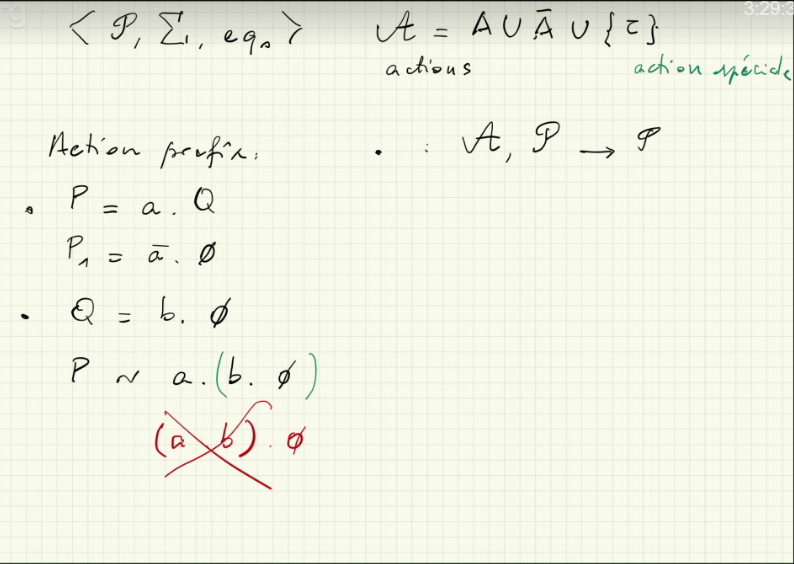 3:29:3
< 𝒫, Σ, eq₀ > 𝒜 = A ∪ Ā ∪ {τ}
actions action spéciale
Action prefix: • : 𝒜, 𝒫 → 𝒫
• P = a . Q
P₁ = ā . ∅
• Q = b . ∅
P ~ a . (b . ∅)
(a b) . ∅